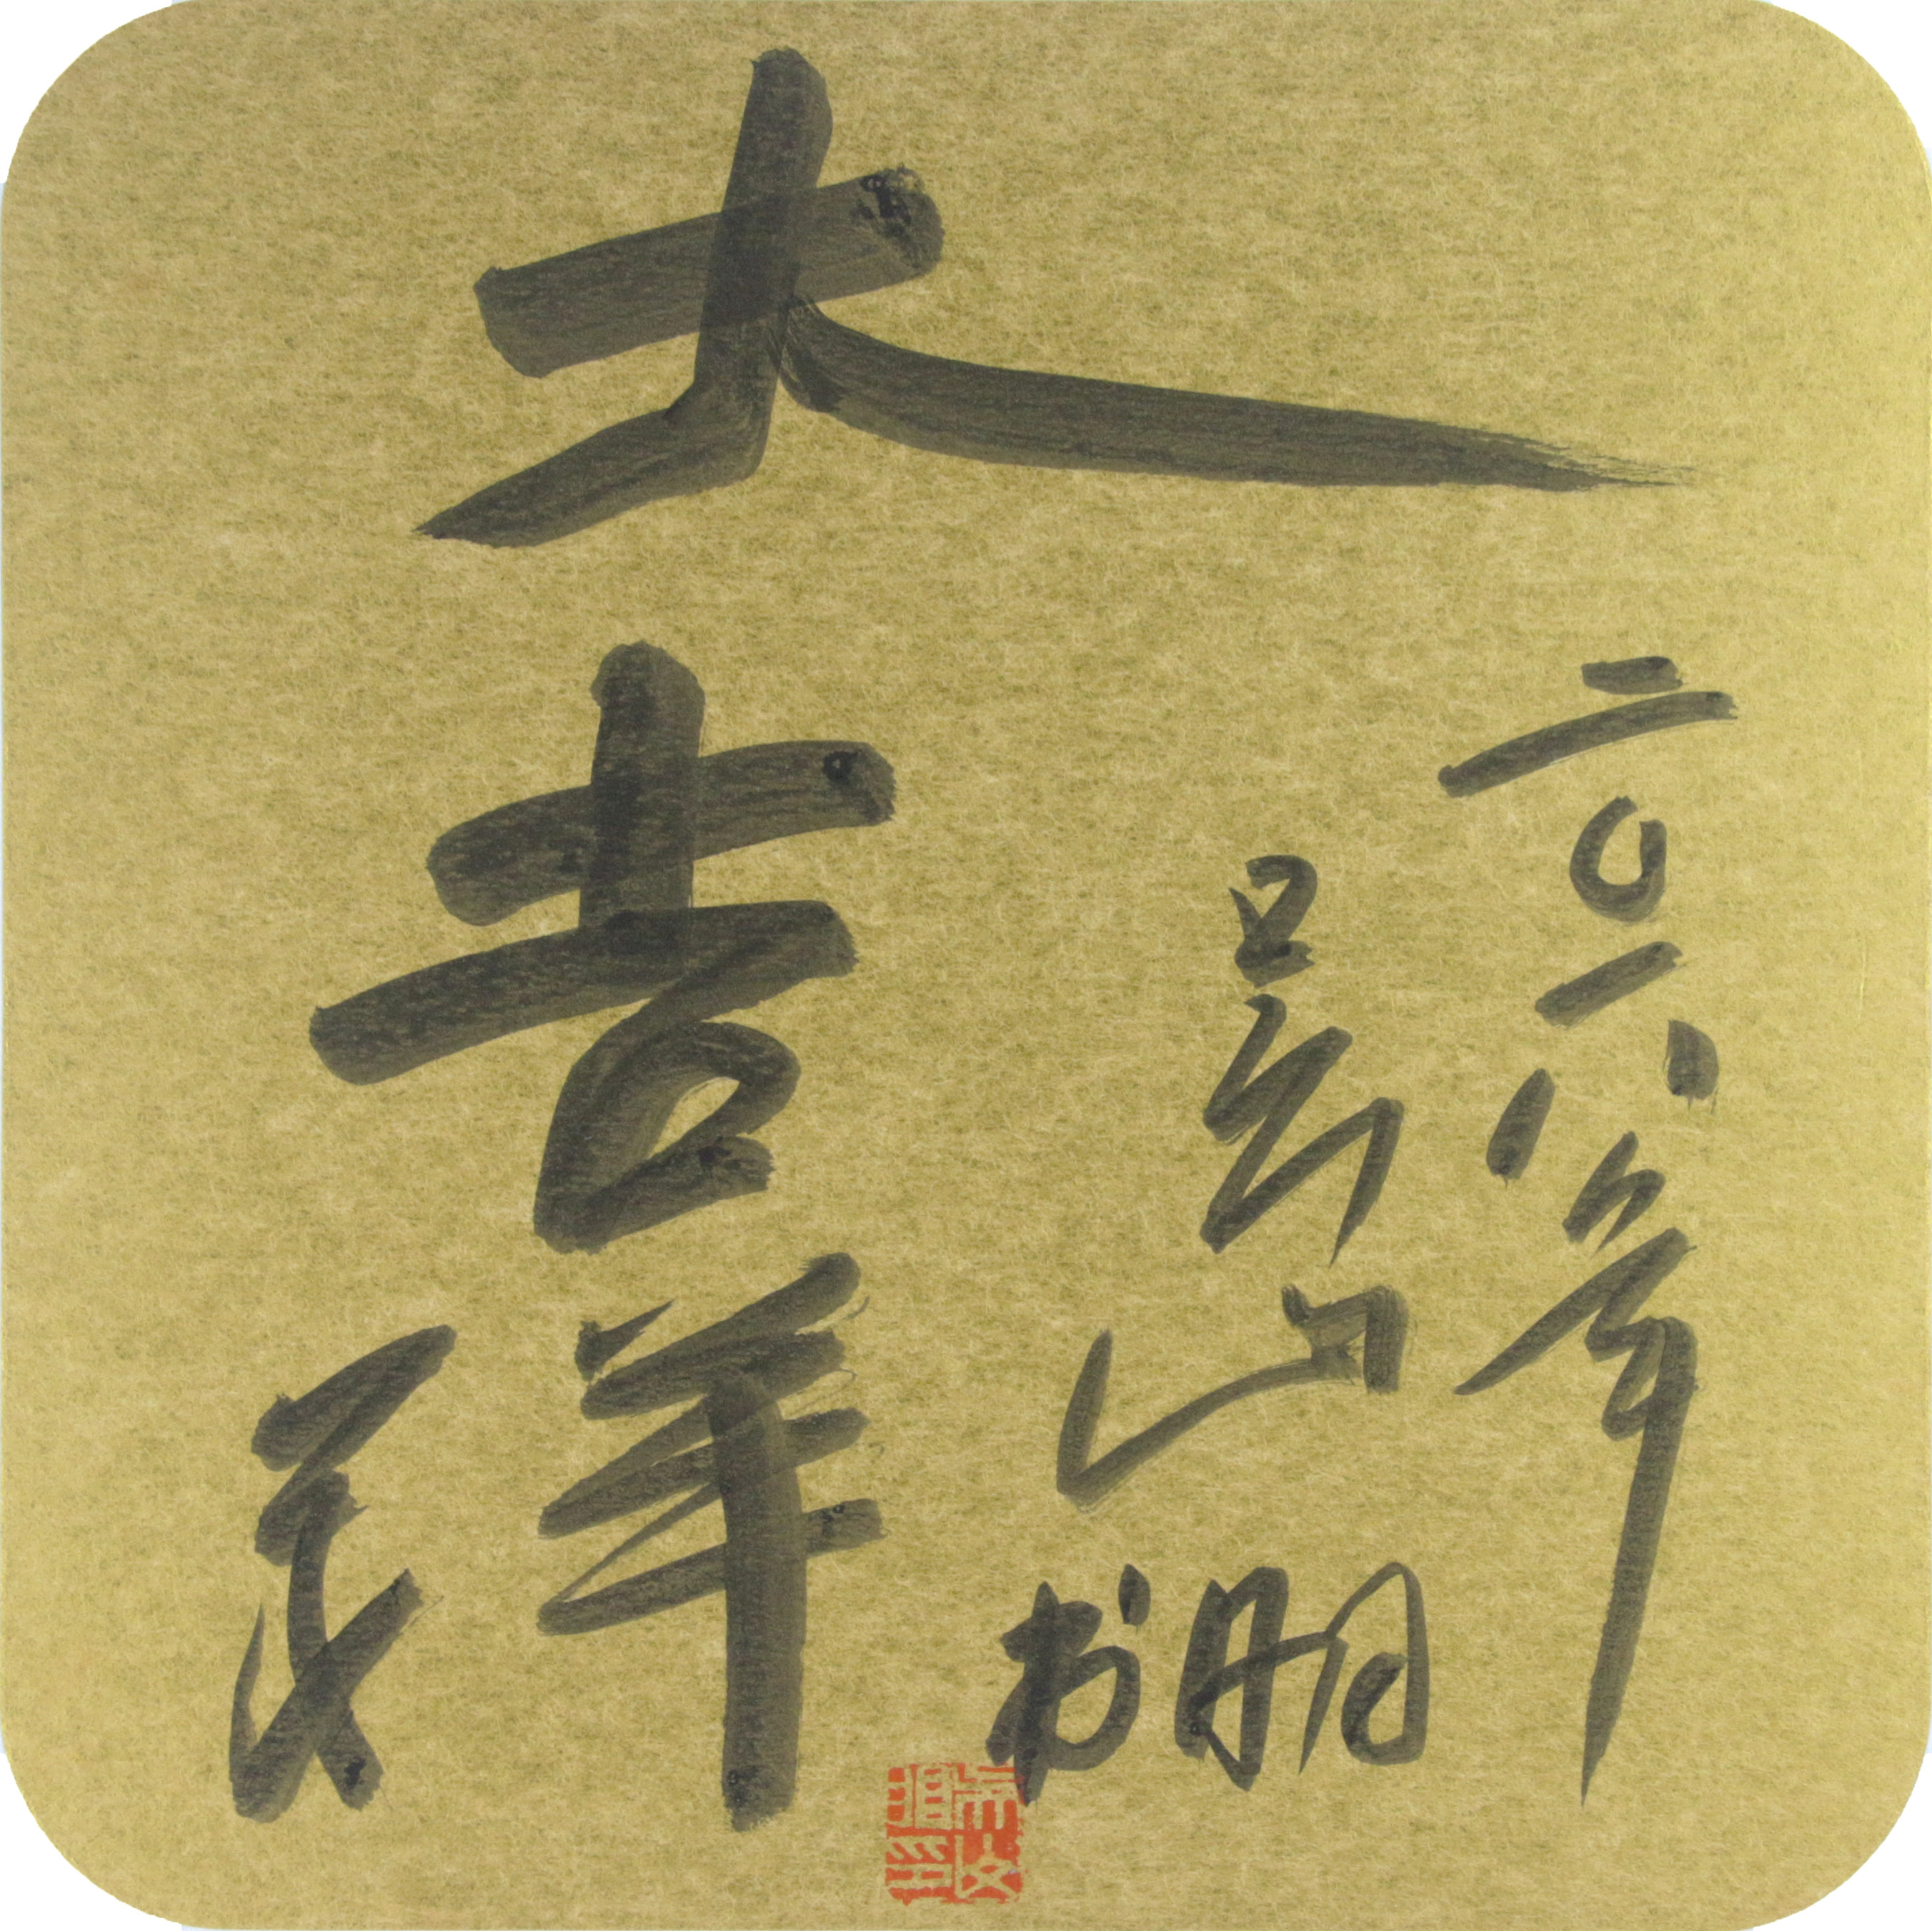 大吉祥
二〇一八年
吴山明书